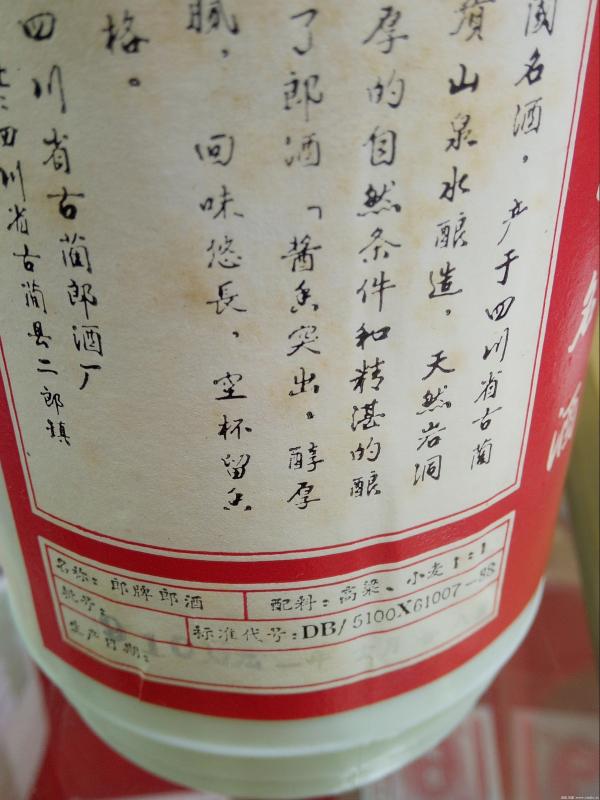 國名酒，产于四川省古蔺
山泉水酿造，天然岩洞
厚的自然条件和精湛的酿
了郎酒「酱香突出。醇厚
腻，回味悠長，空杯留香
格。
四川省古蔺郎酒厂
四川省古蔺县二郎镇
名酒
名称：郎牌郎酒
配料：高粱、小麦1：1
批号：
标准代号：DB/5100X61007-88
生产日期：